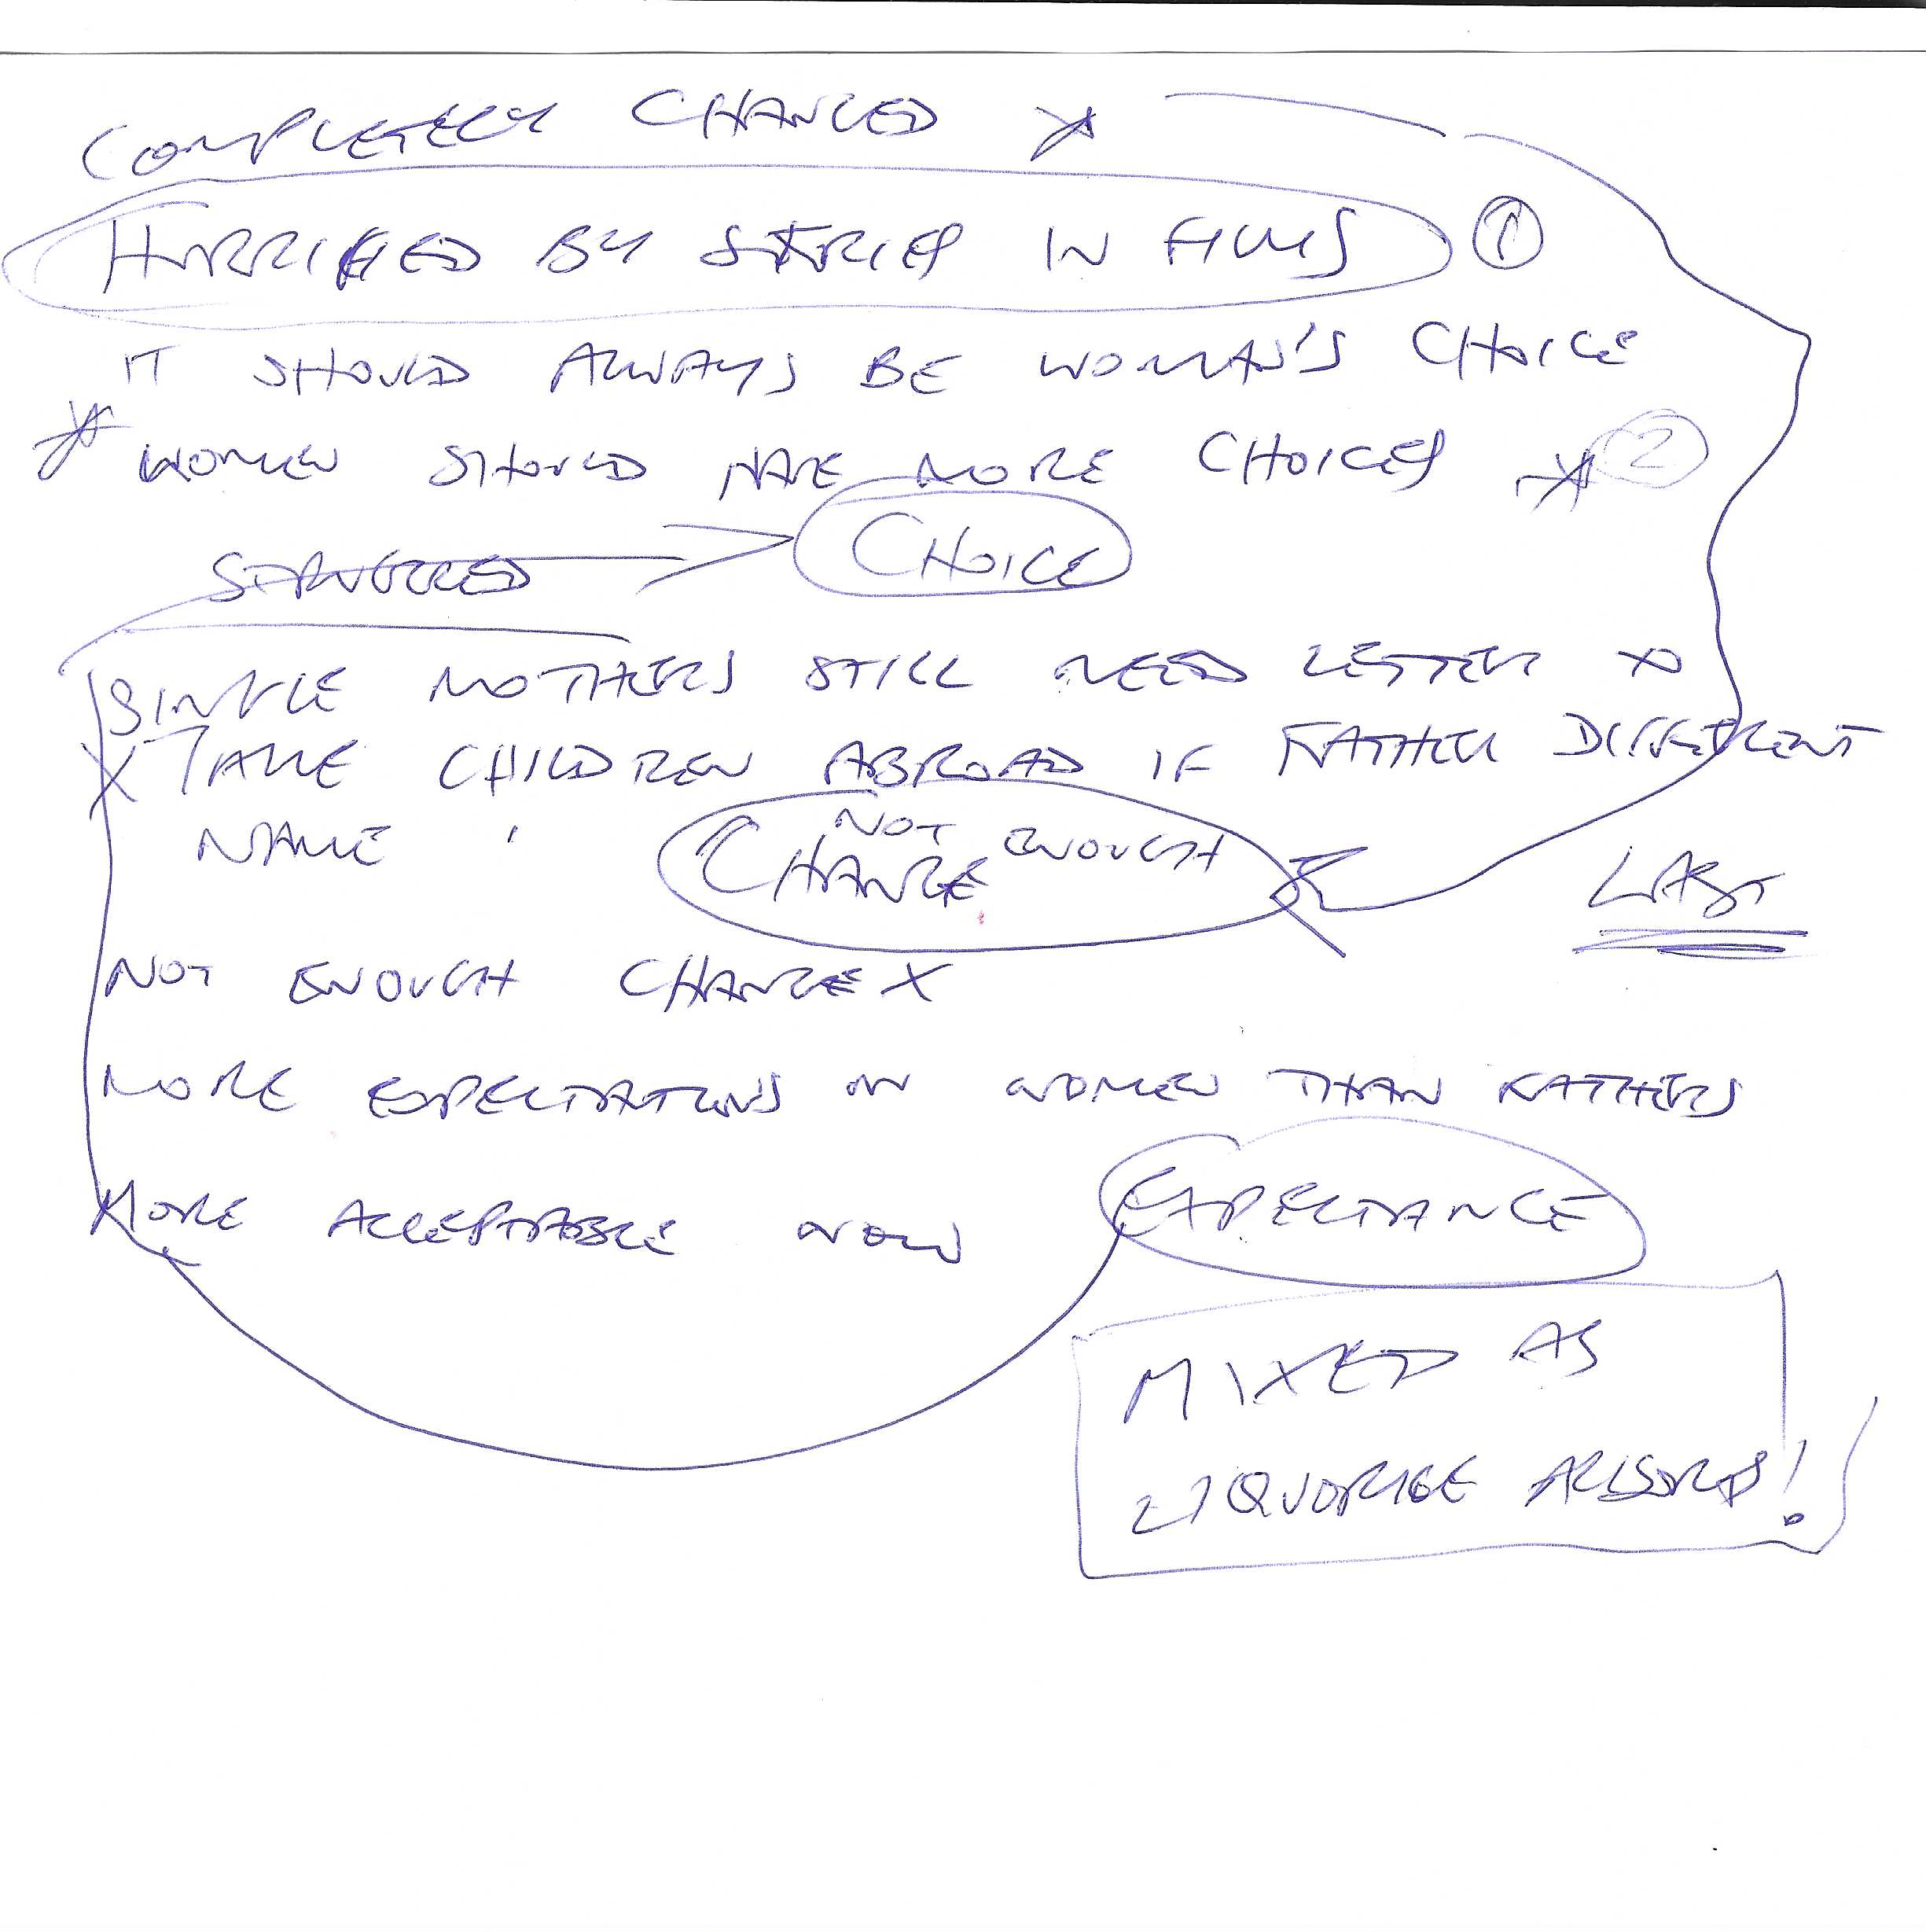 COMPLETELY CHANGED *
HORRIFIED BY STORIES IN FILMS 1
IT SHOULD ALWAYS BE WOMAN'S CHOICE
* WOMEN SHOULD HAVE MORE CHOICES * 2
CHOICE
SINGLE MOTHERS STILL NEED LETTER TO
X TAKE CHILDREN ABROAD IF FATHER DIFFERENT
NAME
NOT ENOUGH
CHANGE
LAST
NOT ENOUGH CHANGE X
MORE EXPECTATIONS ON WOMEN THAN FATHERS
MORE ACCEPTABLE NOW
EXPECTANCE
MIXED AS
LIQUORICE ALLSORTS!